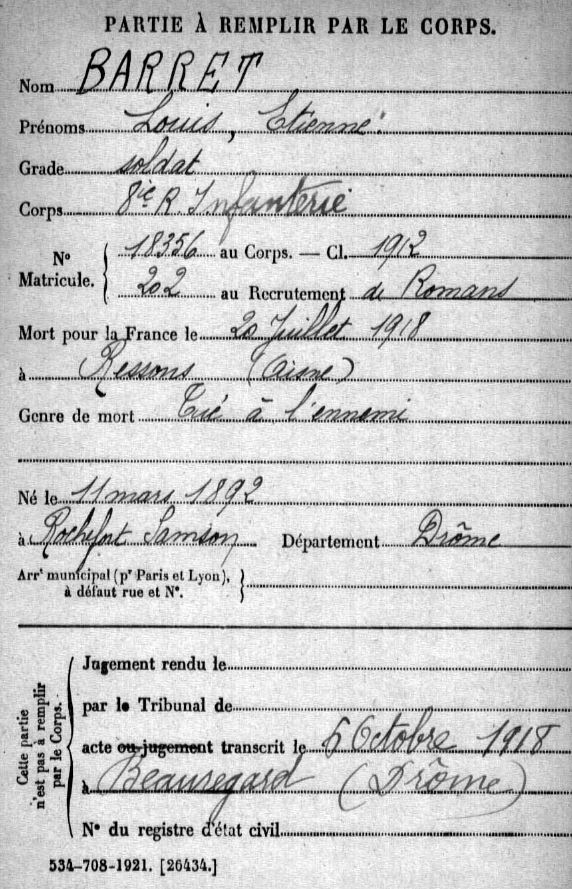 PARTIE À REMPLIR PAR LE CORPS.
Nom BARRET
Prénoms Louis, Etienne.
Grade soldat
Corps 8ie R. Infanterie
No Matricule. 18356 au Corps. — Cl. 1912
202 au Recrutement de Romans
Mort pour la France le 20 Juillet 1918
à Ressons (Aisne)
Genre de mort Tué à l'ennemi
Né le 11 mars 1892
à Rochefort Samson Département Drôme
Arrt municipal (pr Paris et Lyon),
à défaut rue et No.
Cette partie n'est pas à remplir par le Corps.
Jugement rendu le
par le Tribunal de
acte ou jugement transcrit le 6 Octobre 1918
à Beauregard (Drôme)
No du registre d'état civil
534-708-1921. [26434.]